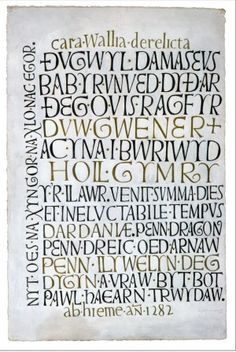 cara Wallia derelicta
ÐVGWYL DAMASEVS
BAB YR VNVED DYÐ AR
ÐEG O VIS RAGFYR
DVW GWENER +
AC YNA I BWRIWYD
HOLL GYMRY
Y'R LLAWR. VENIT SVMMA DIES
ET INELVCTABILE TEMPVS
DARDANIÆ. PENN DRAGON
PENN DREIC OED ARNAW
PENN LLYWELYN DEG
DYGYN A VRAW BYT BOT
PAWL HAEARN TRWYDAW.
ab hieme añ 1282
NYT·OES·NA·XYNGOR·NA·XLO·NAC·EGOR·